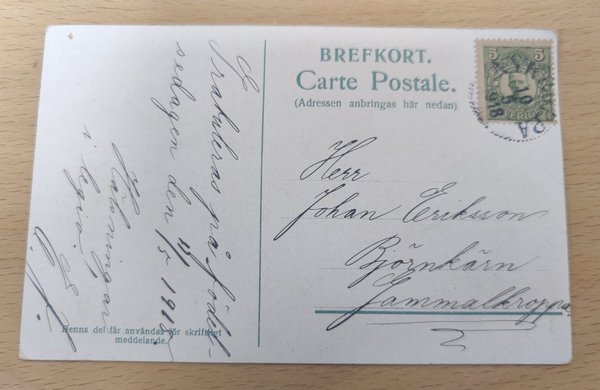 BREFKORT.
Carte Postale.
(Adressen anbringas här nedan)
5 5
SVERIGE
Herr
Johan Eriksson
Björnkärn
Gammalkroppa
Gratuleras på födel-
sedagen den 11/5 1918
Hälsningar
i legio.
Denna del får användas för skriftligt
meddelande.